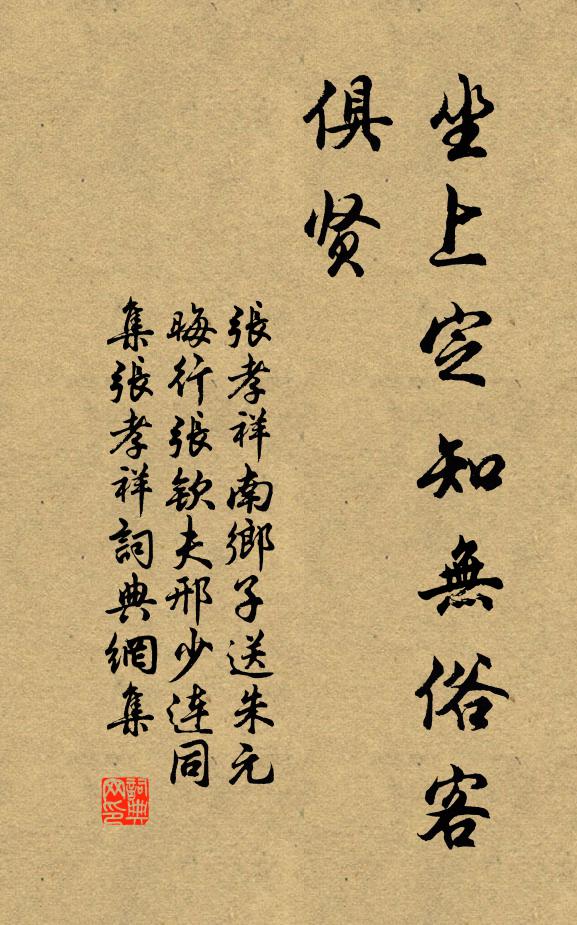 坐上定知無俗客
俱贤
張孝祥南鄉子送朱元
晦行張欽夫邢少连同
集張孝祥詞典網集
詞典
网印